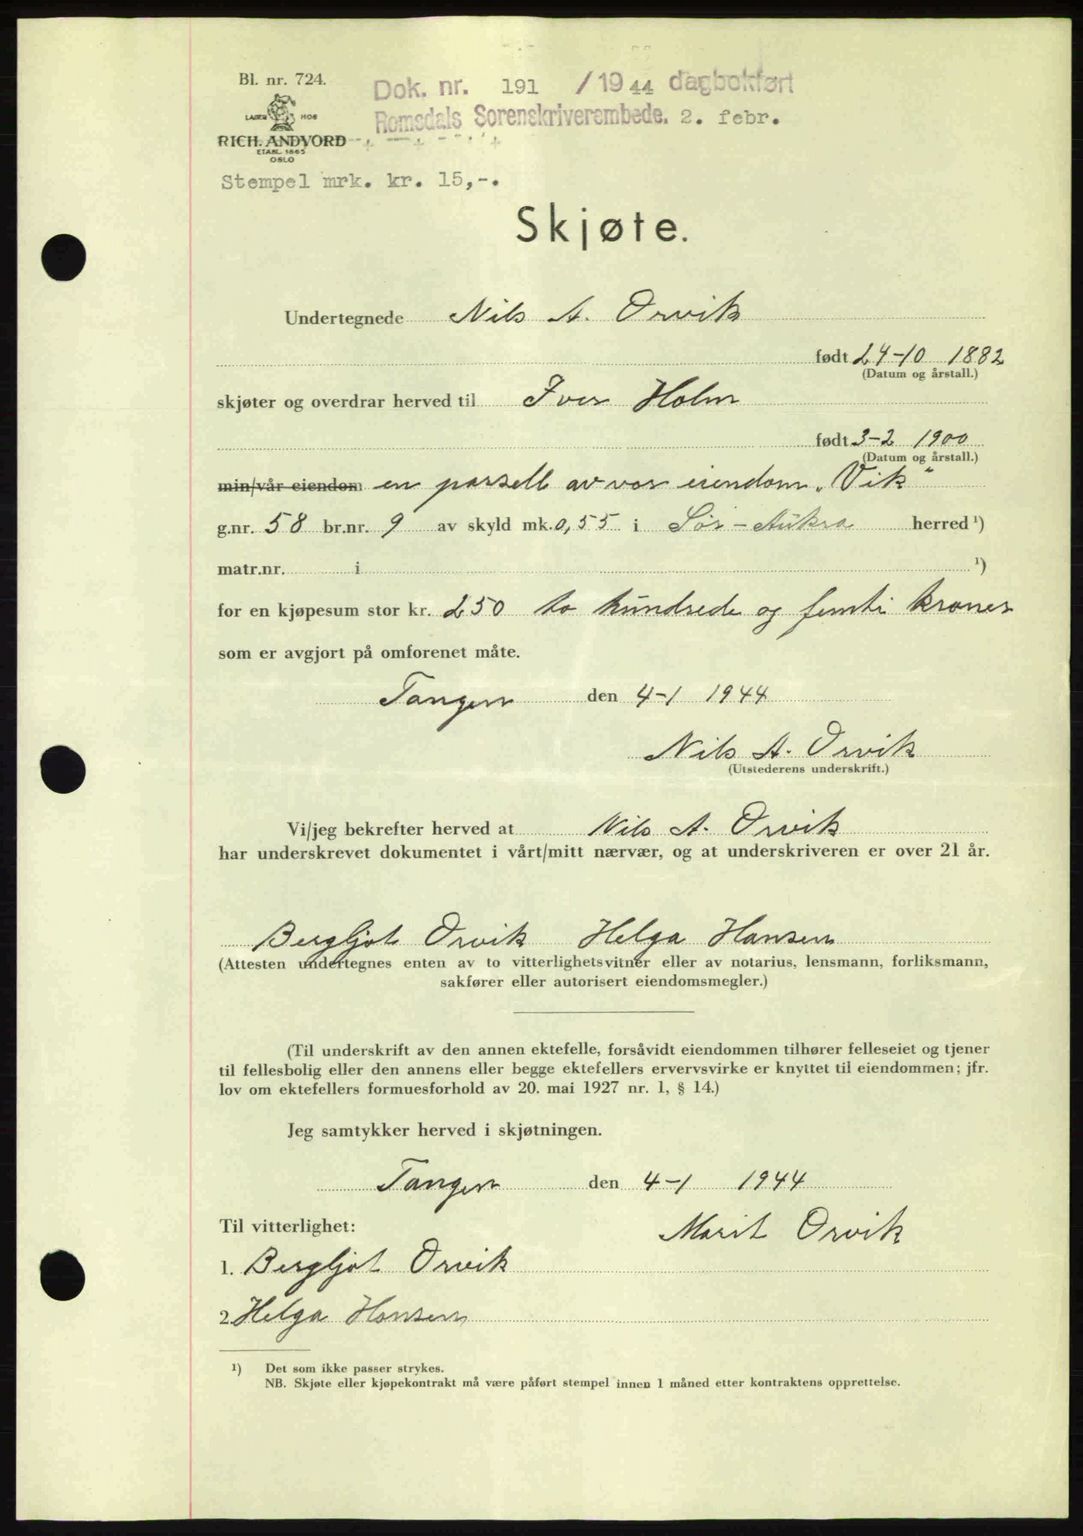 Bl. nr. 724.
Dok. nr. 191 /1944 dagbokført
LAGER HOS
Romsdals Sorenskriverembede. 2. febr.
RICH. ANDVORD
ETABL. 1865
OSLO
Stempel mrk. kr. 15,-.
Skjøte.
Undertegnede Nils A. Orvik
født 24-10 1882
(Datum og årstall.)
skjøter og overdrar herved til Iver Holm
født 3-2 1900
(Datum og årstall.)
min/vår eiendom en parsell av vor eiendom „Vik"
g.nr. 58 br.nr. 9 av skyld mk. 0,55 i Sør-Aukra herred ¹)
matr.nr. i ¹)
for en kjøpesum stor kr. 250 to hundrede og femti kroner
som er avgjort på omforenet måte.
Tangen den 4-1 1944
Nils A. Orvik
(Utstederens underskrift.)
Vi/jeg bekrefter herved at Nils A. Orvik
har underskrevet dokumentet i vårt/mitt nærvær, og at underskriveren er over 21 år.
Bergljot Orvik Helga Hansen
(Attesten undertegnes enten av to vitterlighetsvitner eller av notarius, lensmann, forliksmann,
sakfører eller autorisert eiendomsmegler.)
(Til underskrift av den annen ektefelle, forsåvidt eiendommen tilhører felleseiet og tjener
til fellesbolig eller den annens eller begge ektefellers ervervsvirke er knyttet til eiendommen; jfr.
lov om ektefellers formuesforhold av 20. mai 1927 nr. 1, § 14.)
Jeg samtykker herved i skjøtningen.
Tangen den 4-1 1944
Til vitterlighet: Marit Orvik
1. Bergljot Orvik
2. Helga Hansen
¹) Det som ikke passer strykes.
NB. Skjøte eller kjøpekontrakt må være påført stempel innen 1 måned etter kontraktens opprettelse.